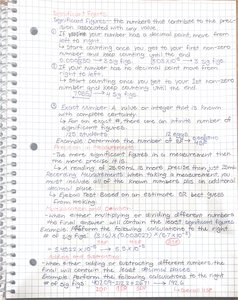 Significant Figures
Significant figures: the numbers that contribute to the precision associated with any value.
① If your number has a decimal point, move from left to right.
↳ Start counting once you get to your first non-zero number and keep counting until the end.
② If your number has no decimal point move from right to left.
↳ Start counting once you get to your 1st non-zero number and keep counting until the end.
③ Exact Number: A value or integer that is known with complete certainty.
↳ For an exact #, there are an infinite number of significant figures.
125 students
12 eggs
Example: Determine the number of SF →
The more significant figures in a measurement then the more precise it is.
↳ A reading of 25.00mL is more precise than just 25mL
Recording Measurements: when taking a measurement, you must include all of the known numbers plus an additional decimal place.
↳ Eyeball Test based on an estimate, OR best guess from making.
• When either multiplying or dividing different numbers the final answer will contain the least significant figures.
Example: Perform the following calculations to the right # of sig figs.
• When either adding or subtracting different numbers the final will contain the least decimal places.
Example: Perform the following calculations to the right # of sig figs.